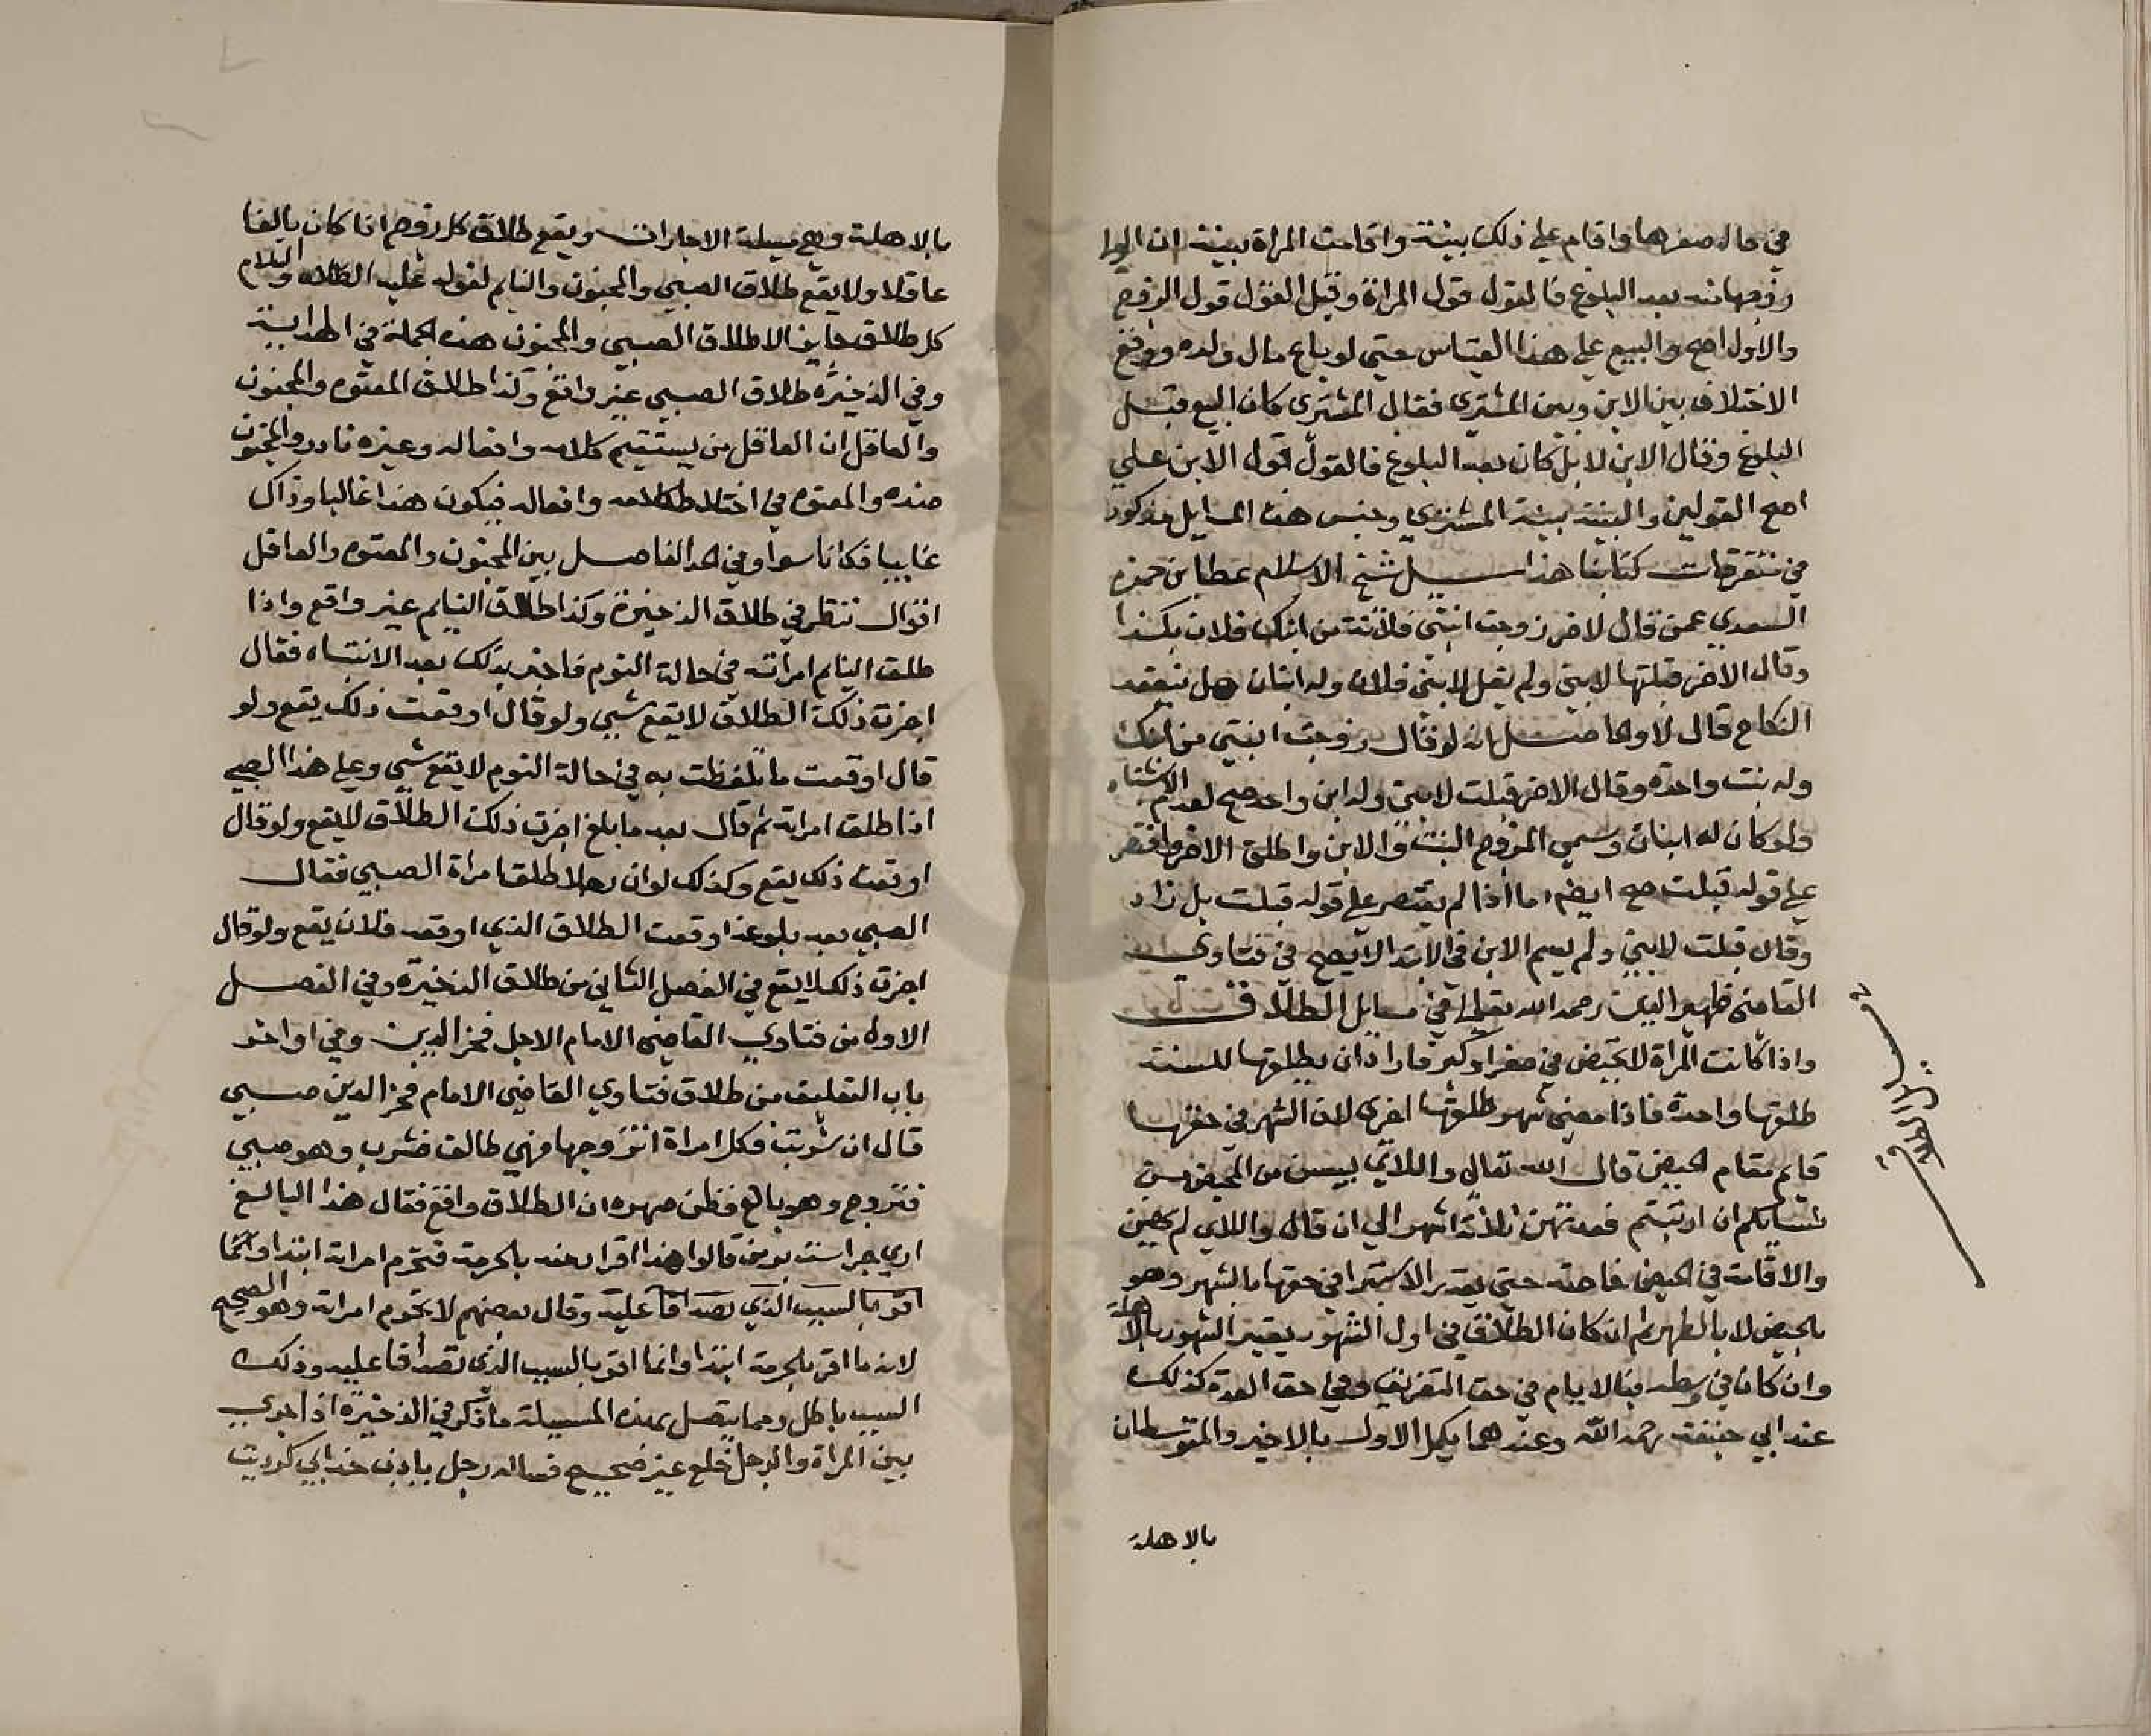 في حال صغرها واقام علي ذلك بينة واقامت المراة بينة ان
زوجها منه بعد البلوغ فالقول قول المراة وقيل القول قول الزوج
والاول اصح والبيع علي هذا القياس حتي لو باع مال ولده ووقع
الاختلاف بين الابن وبين المشتري فقال المشتري كان البيع قبل
البلوغ وقال الابن لا بل كان بعد البلوغ فالقول قول الابن علي
اصح القولين والبينة بينة المشتري وجنس هذه المسايل مذكور
في متفرقات كتابنا هذا سيل شيخ الاسلام عطا بن حمزه
السعدي عمن قال لاخر زوجت ابنتي فلانة من ابنك فلان بكذا
وقال الاخر قبلتها لابني ولم يقل لابني فلان وله ابنان هل ينعقد
النكاح قال لا وكما انه لو قال زوجت ابنتي من ابنك
وله بنت واحدة وقال الاخر قبلت لابني وله ابن واحد صح لعدم الاشتباه
ولو كان له ابنان وسمي المزوج البنت والابن واطلق الاخر واقتصر
علي قوله قبلت صح ايضا اما اذا لم يقتصر علي قوله قبلت بل زاد
وقال قبلت لابني ولم يسم الابن في الابتدا لا يصح في فتاوي
القاضي ظهير الدين رحمه الله تعالي في مسايل الطلاق
واذا كانت المراة لا تحيض في صغر او كبر فاراد ان يطلقها للسنة
طلقها واحدة فاذا مضي شهر طلقها اخري لان الشهر في حقها
قايم مقام الحيض قال الله تعالي واللائي ييسن من المحيض من
نسايكم ان ارتبتم فعدتهن ثلاثة اشهر الي ان قال واللاي لم يحضن
والاقامة في الحيض خاصة حتي يقدر الاستبرا في حقها بالشهر وهو
بالحيض لا بالطهر ثم ان كان الطلاق في اول الشهور يعتبر الشهور بالاهلة
وان كان في وسطه فبالايام في حق التفريق وفي حق العدة كذلك
عند ابي حنيفة رحمه الله وعندهما يكمل الاول بالاخير والمتوسطان
بالاهلة
بالاهلة وهي مسيلة الاجارات ويقع طلاق كل زوج اذا كان بالغا
عاقلا ولا يقع طلاق الصبي والمجنون والنايم لقوله عليه الصلاة والسلام
كل طلاق جايز الا طلاق الصبي والمجنون هذه الجملة في الهداية
وفي الذخيرة طلاق الصبي غير واقع وكذا طلاق المعتوه والمجنون
والعاقل ان العاقل من يستقيم كلامه وافعاله وغيره نادر والمجنون
ضده والمعتوه من اختلط كلامه وافعاله فيكون هذا غالبا وذاك
غالبا فكانا سوا وفي الحد الفاصل بين المجنون والمعتوه والعاقل
اقوال تنظر في طلاق الذخيرة وكذا طلاق النايم غير واقع واذا
طلق النايم امراته في حالة النوم فاخبر بذلك بعد الانتباه فقال
اجزت ذلك الطلاق لا يقع شيي ولو قال اوقعت ذلك يقع ولو
قال اوقعت ما تلفظت به في حالة النوم لا يقع شيي وعلي هذا الصبي
اذا طلق امراته ثم قال بعد ما بلغ اجزت ذلك الطلاق لا يقع ولو قال
اوقعت ذلك يقع وكذلك لو ان رجلا طلق امراة الصبي فقال
الصبي بعد بلوغه اوقعت الطلاق الذي اوقعه فلان يقع ولو قال
اجزت ذلك لا يقع في الفصل الثاني من طلاق الذخيرة وفي الفصل
الاول من فتاوي القاضي الامام الاجل فخر الدين وفي اواخر
باب التعليق من طلاق فتاوي القاضي الامام فخر الدين صبي
قال ان شربت فكل امراة اتزوجها فهي طالق فشرب وهو صبي
فتزوج وهو بالغ فظن صهره ان الطلاق واقع فقال هذا البالغ
اري حرامست بر من قالوا هذا اقرار منه بالحرمة فتحرم امراته ابتدا وانما
اقر بالسبب الذي تصادقا عليه وقال بعضهم لا تحرم امراته وهو الصحيح
لانه ما اقر بالحرمة ابتدا وانما اقر بالسبب الذي تصادقا عليه وذلك
السبب باطل ومما يتصل بهذه المسيلة ما ذكر في الذخيرة اذا جري
بين المراة والرجل خلع غير صحيح فساله رجل